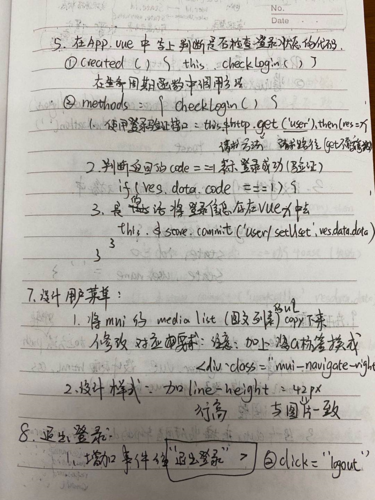 No.
Date
5. 在App.vue 中 写上判断是否检查登录状态的代码.
① created ( ) { this. checkLogin ( ) }
在生命周期函数中调用方法
② methods { checkLogin ( ) {
1. 使用登录验证接口 = this.$http.get ('user').then(res=>{
请求方法 请求路径
2.判断返回的code == 1 表示登录成功(验证)
if ( res. data. code === 1) {
3. 是的话 将登录信息存在vuex中去
this. $ store. commit ('user/setUser', res.data.data)
}
}
7. 设计 用户菜单:
1. 将mui 的 media list (图文列表) 的ul copy下来
修改 对应要求: 注意: 加上 将a标签换成
<div class = "mui-navigate-right
2. 设计样式: 加line-height = 42px
行高 与图片一致
8. 退出登录:
1. 增加事件 给 "退出登录" > @click = "logout"